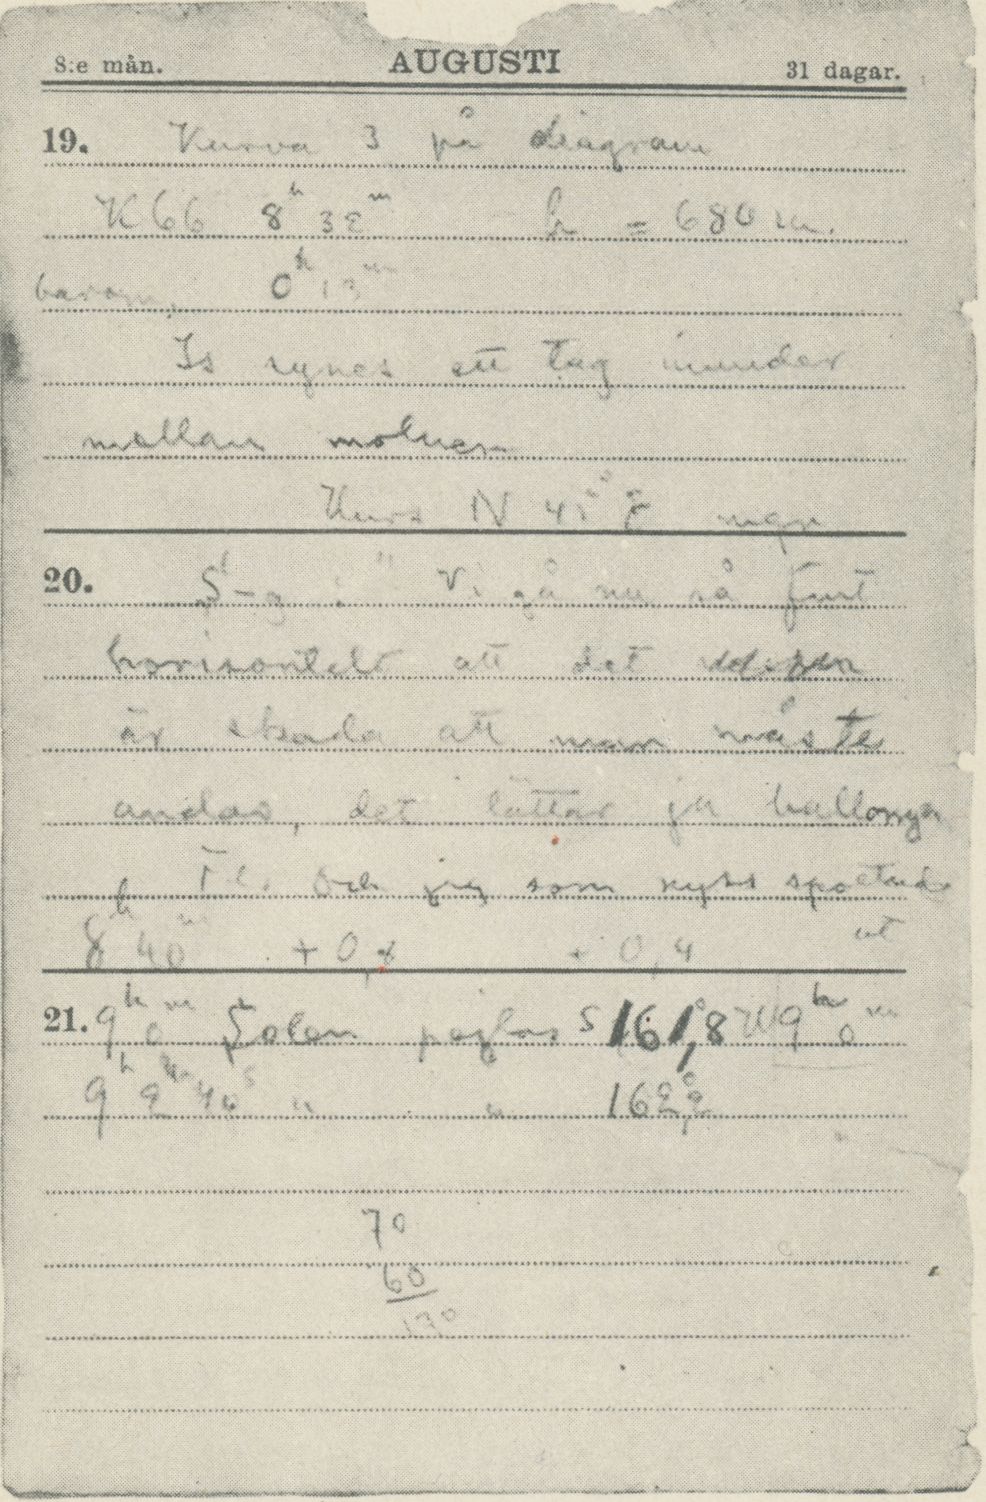 8:e mån. AUGUSTI 31 dagar.
19. Kurva 3 på diagram
K66 8h 32m h = 680 m.
barom, 0h 13m
Is synes ett tag inunder
mellan molnen
Kurs N 45° E
20. S-g : " Vi gå nu så fint
horisontelt att det
är skada att man måste
andas, det lättar ju ballongen
Fl. Och jag som nyss spottade
ut
8h 40m +0,8 + 0,4
21. 9h 0m Solen pejlas S 161°,8 W 9h 0m
9h 2m 40s " " 162°,2
70
60
130